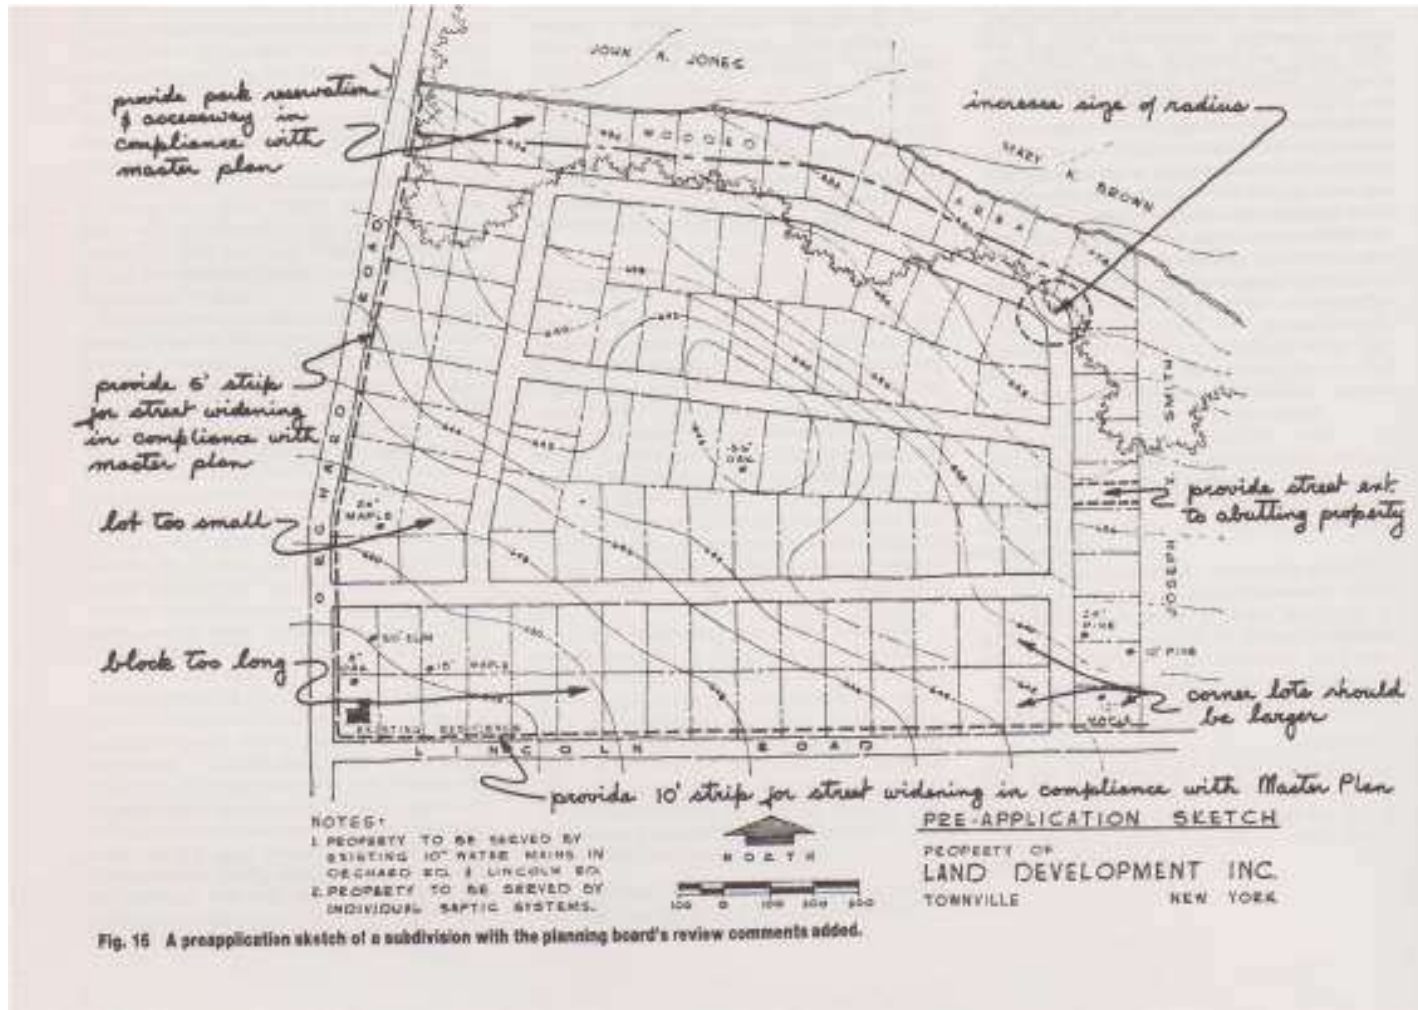 JOHN A. JONES
provide park reservation
& accessway in
compliance with
master plan
increase size of radius
WOODED
AREA
MARY K. BROWN
ORCHARD ROAD
provide 5' strip
for street widening
in compliance with
master plan
lot too small
24"
MAPLE
OAK
provide street ext.
to abutting property
JOSEPH Z. SMITH
block too long
ELM
18" MAPLE
OAK
24"
PINE
10" PINE
MAPLE
corner lots should
be larger
EXISTING RESIDENCE
LINCOLN ROAD
provide 10' strip for street widening in compliance with Master Plan
NOTES:
1. PROPERTY TO BE SERVED BY
EXISTING 10" WATER MAINS IN
ORCHARD RD. & LINCOLN RD.
2. PROPERTY TO BE SERVED BY
INDIVIDUAL SEPTIC SYSTEMS.
NORTH
100 0 100 200 300
PRE-APPLICATION SKETCH
PROPERTY OF
LAND DEVELOPMENT INC.
TOWNVILLE NEW YORK
Fig. 16 A preapplication sketch of a subdivision with the planning board's review comments added.